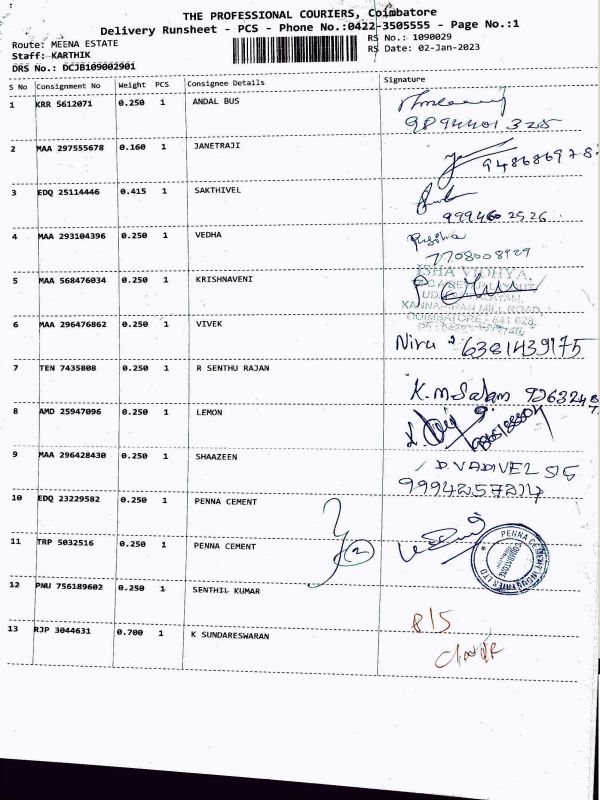 THE PROFESSIONAL COURIERS, Coimbatore
Delivery Runsheet - PCS - Phone No.:0422-3505555 - Page No.:1
Route: MEENA ESTATE
RS No.: 1090029
Staff: KARTHIK
RS Date: 02-Jan-2023
DRS No.: DCJB109002901
S No Consignment No Weight PCS Consignee Details Signature
1 KRR 5612071 0.250 1 ANDAL BUS
9894401325
2 MAA 297555678 0.160 1 JANETRAJI
948686978
3 EDQ 25114446 0.415 1 SAKTHIVEL
9994602526
4 MAA 293104396 0.250 1 VEDHA
7708008929
5 MAA 568476034 0.250 1 KRISHNAVENI
ISHA VIDHYA,
KANNAPPAN MILL ROAD,
COIMBATORE - 641 028
6 MAA 296476862 0.250 1 VIVEK
Niru 6381439175
7 TEN 7435808 0.250 1 R SENTHU RAJAN
K.M Salam 9263248
8 AMD 25947096 0.250 1 LEMON
9 MAA 296428430 0.250 1 SHAAZEEN
D.VADIVEL
9994257214
10 EDQ 23229582 0.250 1 PENNA CEMENT
11 TRP 5032516 0.250 1 PENNA CEMENT
2
PENNA CEMENT INDUSTRIES LTD
12 PNU 756189602 0.250 1 SENTHIL KUMAR
13 RJP 3044631 0.700 1 K SUNDARESWARAN